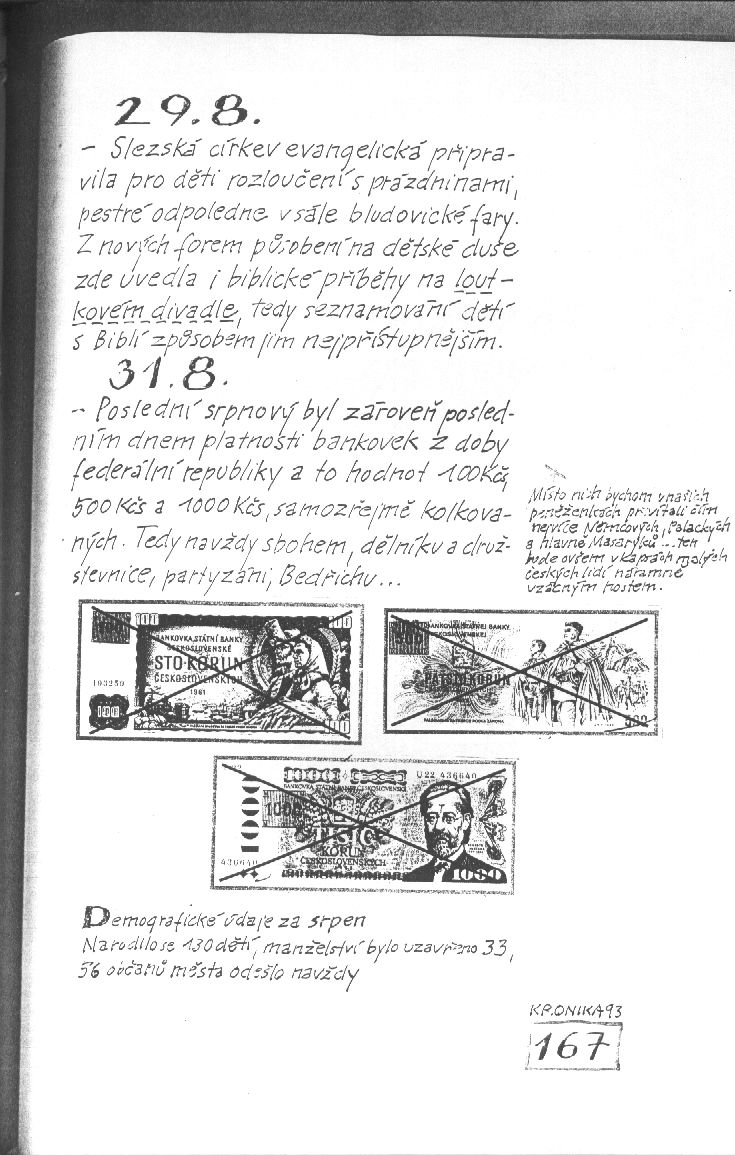 29.8.
- Slezská církev evangelická připra-
vila pro děti rozloučení s prázdninami,
pestré odpoledne v sále bludovické fary.
Z nových forem působení na dětské duše
zde uvedla i biblické příběhy na lout-
kovém divadle, tedy seznamování dětí
s Biblí způsobem jim nejpřístupnějším.
31.8.
- Poslední srpnový byl zároveň posled-
ním dnem platnosti bankovek z doby
federální republiky a to hodnot 100 Kčs,
500 Kčs a 1000 Kčs, samozřejmě kolkova-
ných. Tedy navždy sbohem, dělníku a druž-
stevnice, partyzáni, Bedřichu...
Místo nich bychom v našich
peněženkách přivítali čím
nejvíce Němcových, Palackých
a hlavně Masaryků ... ten
bude ovšem v kapsách malých
českých lidí náramně
vzácným hostem.
100
BANKOVKA STÁTNÍ BANKY
ČESKOSLOVENSKÉ
STO KORUN
ČESKOSLOVENSKÝCH
1961
103250
100
100
BANKOVKA STÁTNÍ BANKY
ČESKOSLOVENSKÉ
PĚTSET KORUN
500
1000
U22 436640
BANKOVKA STÁTNÍ BANKY ČESKOSLOVENSKÉ
1000
TISÍC
KORUN
ČESKOSLOVENSKÝCH
436640
1000
Demografické údaje za srpen
Narodilo se 130 dětí, manželství bylo uzavřeno 33,
56 občanů města odešlo navždy
KRONIKA 93
167